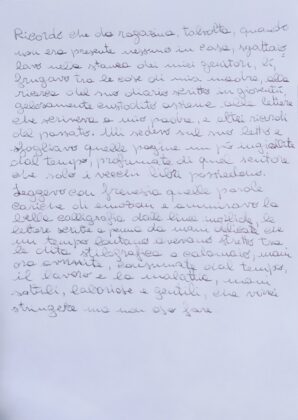 Ricordo che da ragazina, talvolta, quando
non era presente nessuno in casa, sgattaio
lavo nella stanza dei miei genitori, lì,
frugavo tra le cose di mia madre, alla
ricerca del suo diario scritto in gioventù,
gelosamente custodito assieme alle lettere
che scriveva a mio padre, e altri ricordi
del passato. Mi sedevo sul suo letto e
sfogliavo quelle pagine un pò ingiallite
dal tempo, profumate di quel sentore
che solo i vecchi libri possiedono.
Leggevo con frenesia quelle parole
cariche di emozioni e ammiravo la
bella calligrafia dalle linee morbide, le
lettere scritte a penna da mani delicate che
un tempo lontano avevano stretto tra
le dita stilografica e calamaio, mani
ora avvizzite, consumate dal tempo,
il lavoro e la malattia, mani
sottili, laboriose e gentili, che vorrei
stringere ma non oso fare.